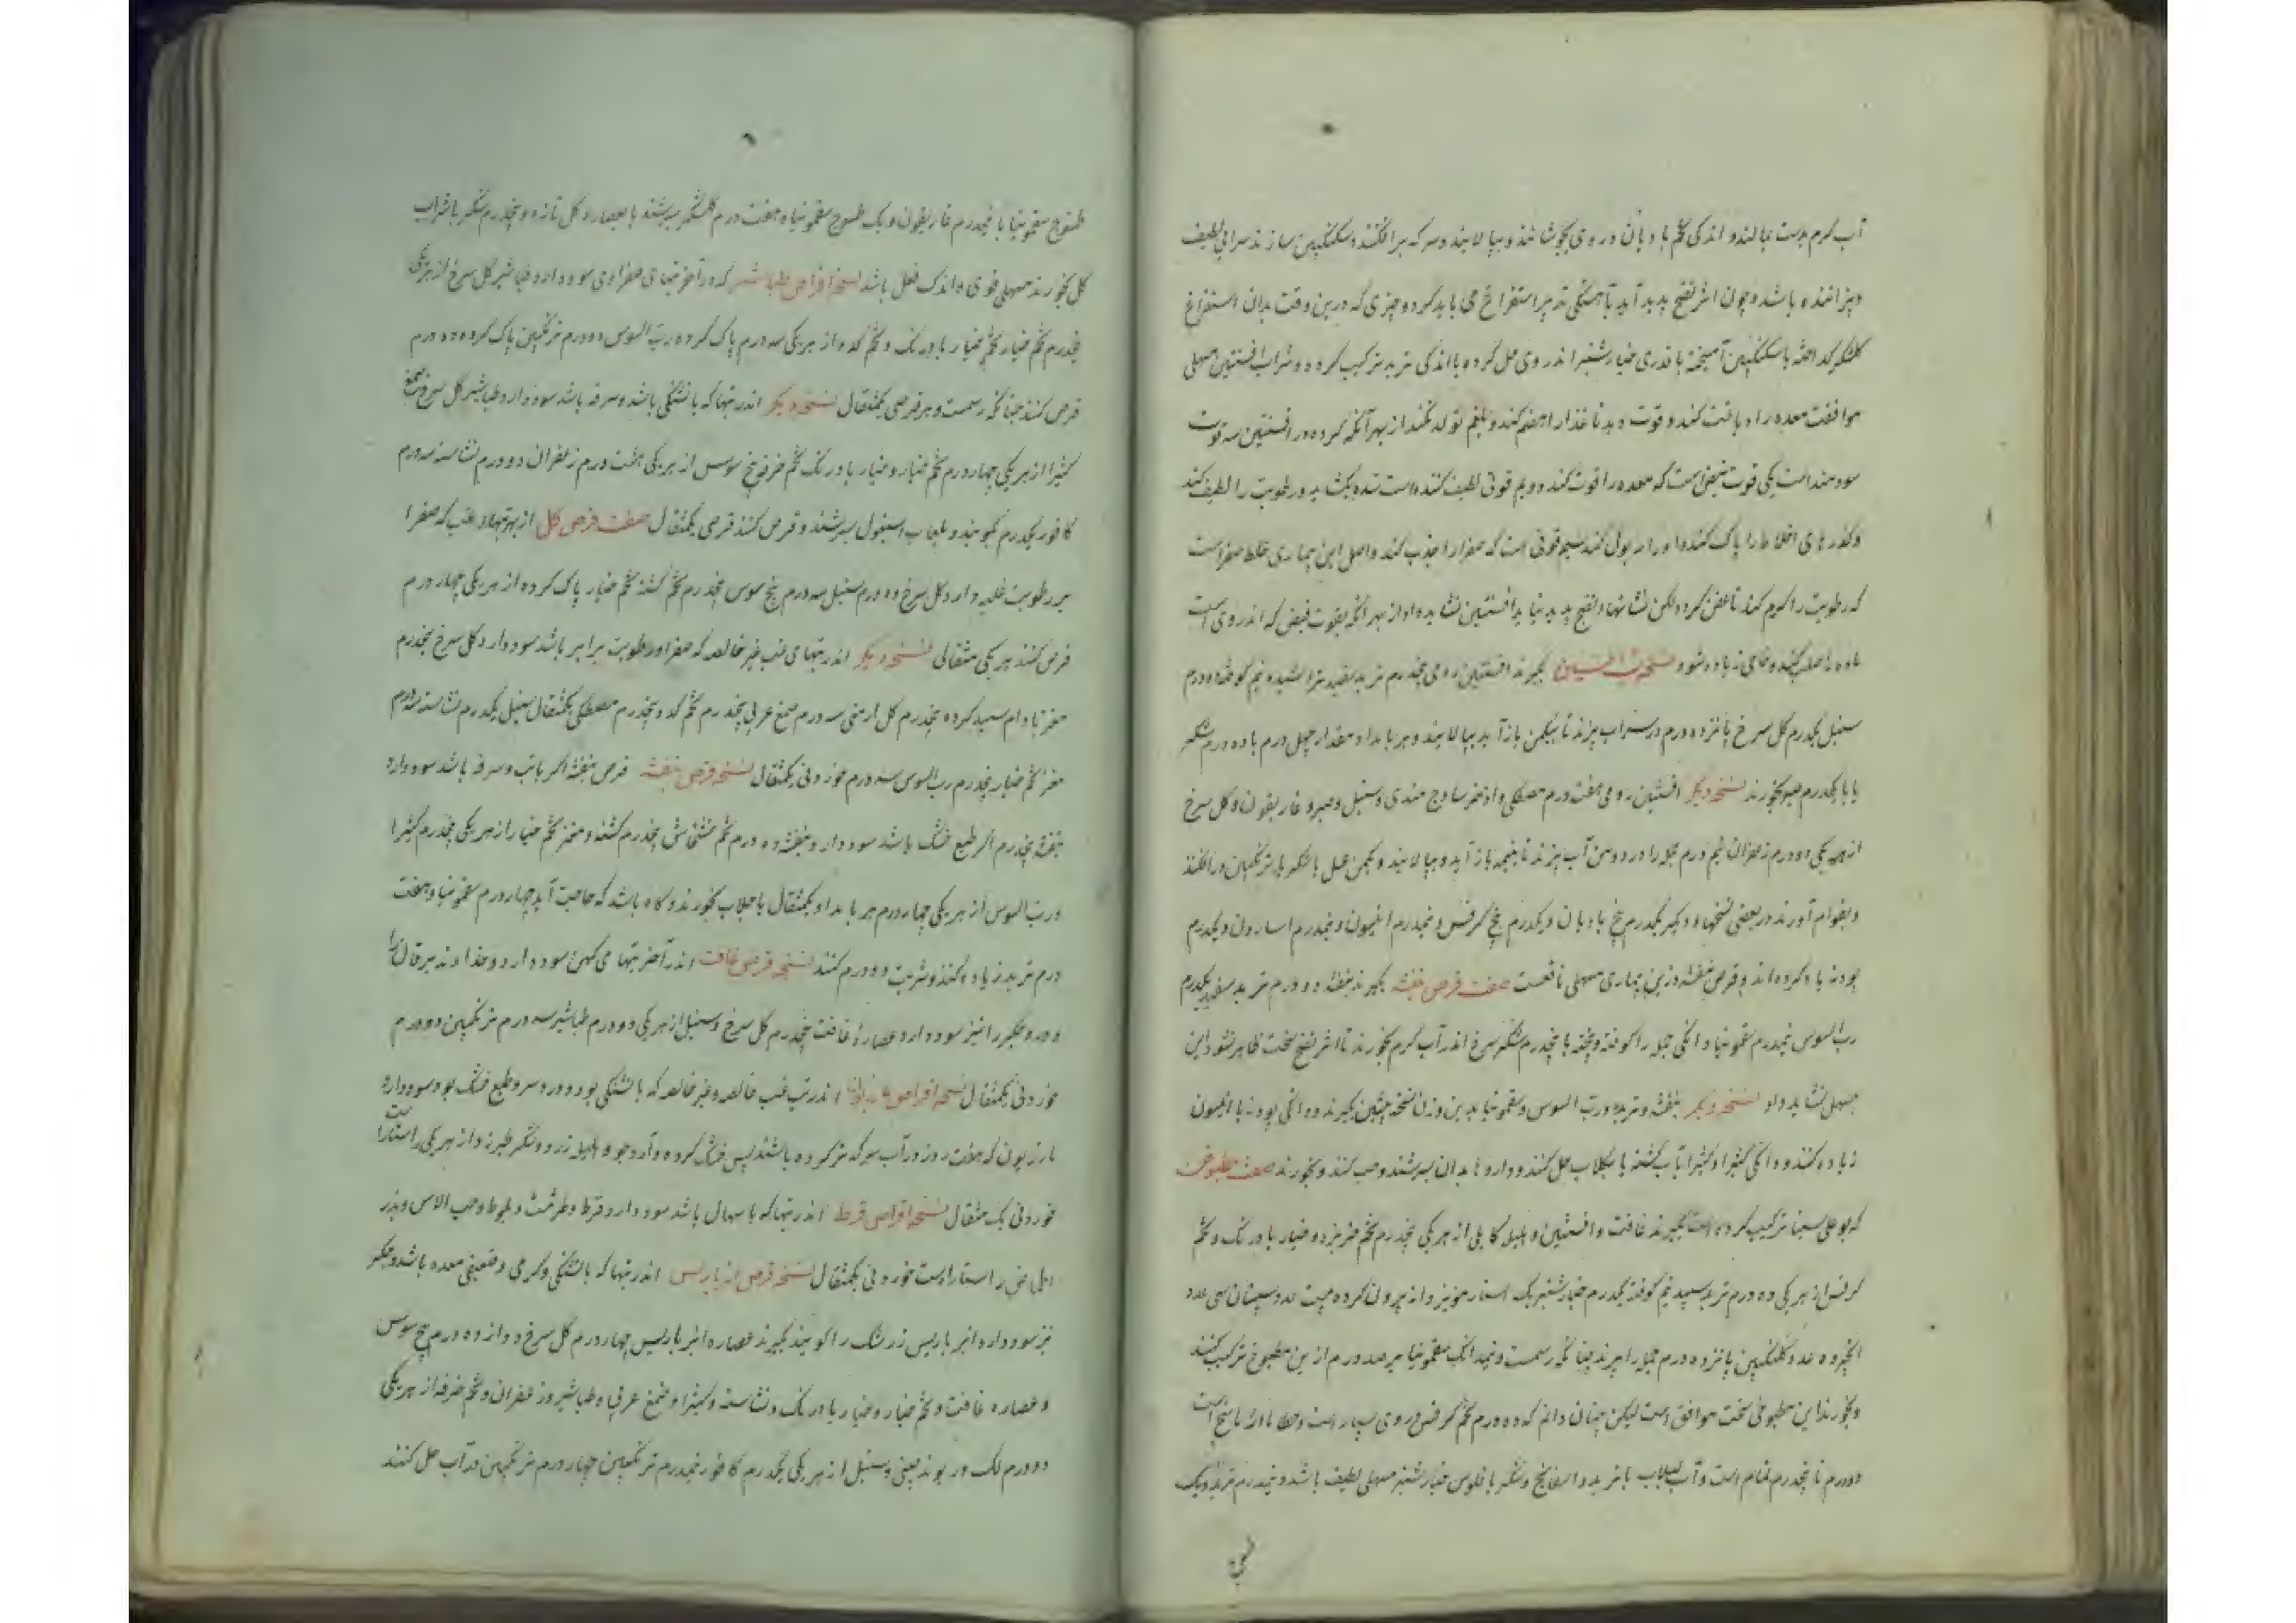 آب کرم بدست بمالند و اندکی تخم بادیان در وی بجوشانند و بپالایند و سرکه برافکنند و سکنکبین سازند سرانی لطیف
و پزاننده باشد و چون اثر نضج پدید آید بآهستکی تدبیر استفراغ می باید کرد و چیزی که درین وقت بدان استفراغ
کلشکر با سکنکبین آمیخته با قدری خیارشنبر اندر وی حل کرده با اندکی تربد ترکیب کرده و شراب افسنتین مسهلی
موافقست معده را دباغت کند و قوت دهد تا غذا را هضم کند و بلغم تولد نکند از بهر آنکه کرده در افسنتین سه قوت
سودمند است یکی قوت قبض است که معده را قوت کند دویم قوتی لطیف کننده است سده بکشاید و رطوبت را لطیف کند
و کذرهای اخلاط را پاک کند و ادرار بول کند سیم قوتی است که صفرا را جذب کند و اصل این بیماری خلط صفراست
که رطوبت را کرم کند تا عفن کردد لکن تا نشانهاء نضج پدید نیاید افسنتین نشاید داد از بهر آنکه بقوت قبض که اندر وی است
ماده را صلب کند و خامی زیاده شود نسخه شراب افسنتین بکیرند افسنتین رومی پنجدرم تربد سفید تراشیده نیم کوفته ده درم
سنبل یکدرم کل سرخ پانزده درم در سه من آب بپزند تا بیکمن باز آید بپالایند و هر بامداد مقدار چهل درم با ده درم شکر
یا با یکدرم صبر بخورند نسخه دیکر افسنتین رومی هفت درم مصطکی و اذخر ساذج هندی و سنبل و صبر و غاریقون و کل سرخ
از هر یکی دو درم زعفران نیم درم جمله را در دو من آب بپزند تا بنیمه باز آید و بپالایند و یکمن عسل یا شکر یا ترنکبین درافکنند
و بقوام آورند در بعضی نسخها دیکر یکدرم بیخ بادیان و یکدرم بیخ کرفس و نیمدرم انیسون و نیمدرم اسارون و یکدرم
پودنه یاد کرده اند و قرص بنفشه درین بیماری مسهلی نافعست صفت قرص بنفشه بکیرند بنفشه دو درم تربد سفید یکدرم
رب السوس نیمدرم سقمونیا دانکی جمله را کوفته و بیخته با پنجدرم شکر سرخ اندر آب کرم بخورند تا اثر نضج سخت ظاهر نشود این
مسهل نشاید داد نسخه دیکر بنفشه و تربد و رب السوس و سقمونیا بدین وزن نسخه پیشین بکیرند و دانکی پودنه یا انیسون
زیاده کنند و دانکی کثیرا و کثیرا بآب کشنه یا بکلاب حل کنند و داروها بدان بسرشند و حب کنند و بخورند صفت مطبوخی
که بوعلی سینا ترکیب کرده است بکیرند غافت و افسنتین و هلیله کابلی از هر یکی پنجدرم تخم خربزه و خیار بادرنک و تخم
کرفس از هر یکی ده درم تربد سپید نیم کوفته یکدرم خیارشنبر یک استار مویز دانه بیرون کرده بیست عدد سپستان سی عدد
انجیر ده عدد کلنکبین پانزده درم جمله را بپزند چنانکه رسمست و نیمدانک سقمونیا بر صد درم از این مطبوخ ترکیب کنند
و بخورند این مطبوخی سخت موافق است لیکن چنان دانم که ده درم تخم کرفس در وی بسیار است و خطا ناسخ است
دو درم تا پنجدرم تمام است و آب لبلاب با تربد و اسفاناخ و شکر با فلوس خیارشنبر مسهلی لطیف باشد و نیمدرم تربد و یک
طسوج سقمونیا با نیمدرم غاریقون و یک طسوج سقمونیا و هفت درم کلشکر بسرشند یا بعصاره کل تازه و پنجدرم شکر یا شراب
کل بخورند مسهلی قوی و اندک فعل باشد نسخه اقراص طباشیر که در آخر تبهای صفراوی سود دارد طباشیر کل سرخ از هر یکی
پنجدرم تخم خیار تخم خیار بادرنک و تخم کدو از هر یکی سه درم پاک کرده رب السوس دو درم ترنکبین پاک کرده ده درم
قرص کنند چنانکه رسمست و هر قرصی یکمثقال نسخه دیکر اندر تبها که با تشنکی باشد و سرفه باشد سود دارد طباشیر کل سرخ صمغ
کثیرا از هر یکی چهار درم تخم خیار و خیار بادرنک تخم خرفه بیخ سوس از هر یکی هشت درم زعفران دو درم نشاسته سه درم
کافور یکدرم بکوبند و بلعاب اسبغول بسرشند و قرص کنند قرصی یکمثقال صفت قرص کل از بهر تبهاء غب که صفرا
بر رطوبت غلبه دارد کل سرخ ده درم سنبل سه درم بیخ سوس پنجدرم تخم کشنه تخم خیار پاک کرده از هر یکی چهار درم
قرص کنند هر یکی مثقالی نسخه دیکر اندر تبهای غب غیر خالصه که صفرا و رطوبت برابر باشد سود دارد کل سرخ پنجدرم
مغز بادام سپید کرده پنجدرم کل ارمنی سه درم صمغ عربی پنجدرم تخم کدو پنجدرم مصطکی یکمثقال سنبل یکدرم نشاسته سه درم
مغز تخم خیار پنجدرم رب السوس سه درم خوردنی یکمثقال نسخه قرص بنفشه قرص بنفشه اکر با تب و سرفه باشد سود دارد
بنفشه پنجدرم اکر طبع خشک باشد سود دارد بنفشه ده درم تخم خشخاش پنجدرم کشنه و مغز تخم خیار از هر یکی پنجدرم کثیرا
و رب السوس از هر یکی چهار درم هر بامداد یکمثقال با جلاب بخورند و کاه باشد که حاجت آید چهار درم سقمونیا و هفت
درم تربد زیاده کنند و شربت دو درم کنند نسخه قرص غافت اندر آخر تبهاء کهن سود دارد و خداوند یرقان را
و درد جکر را نیز سود دارد عصاره غافت پنجدرم کل سرخ و سنبل از هر یکی دو درم طباشیر سه درم ترنکبین دو درم
خوردنی یکمثقال نسخه اقراص مازریون اندر تب غب خالصه و غیر خالصه که با تشنکی بود و درد سر و طبع خشک بود سود دارد
مازریون که هفت روز در آب سرکه تر کرده باشند پس خشک کرده و آرد جو و هلیله زرد و شکر طبرزد از هر یکی راستاراست
خوردنی یک مثقال نسخه اقراص قرط اندر تبها که با سهال باشد سود دارد قرط و طرثوث و بلوط و حب الاس و بذر
الحماض راستاراست خوردنی یکمثقال نسخه قرص انبرباریس اندر تبها که با تشنکی و کرمی و ضعیفی معده باشد و جکر
نیز سود دارد انبرباریس زرشک را کویند بکیرند عصاره انبرباریس چهار درم کل سرخ دوازده درم بیخ سوس
و عصاره غافت و تخم خیار و خیار بادرنک و نشاسته و کثیرا و صمغ عربی و طباشیر و زعفران و تخم خرفه از هر یکی
دو درم لک و ریوند چینی و سنبل از هر یکی یکدرم کافور نیمدرم ترنکبین چهار درم ترنکبین در آب حل کنند